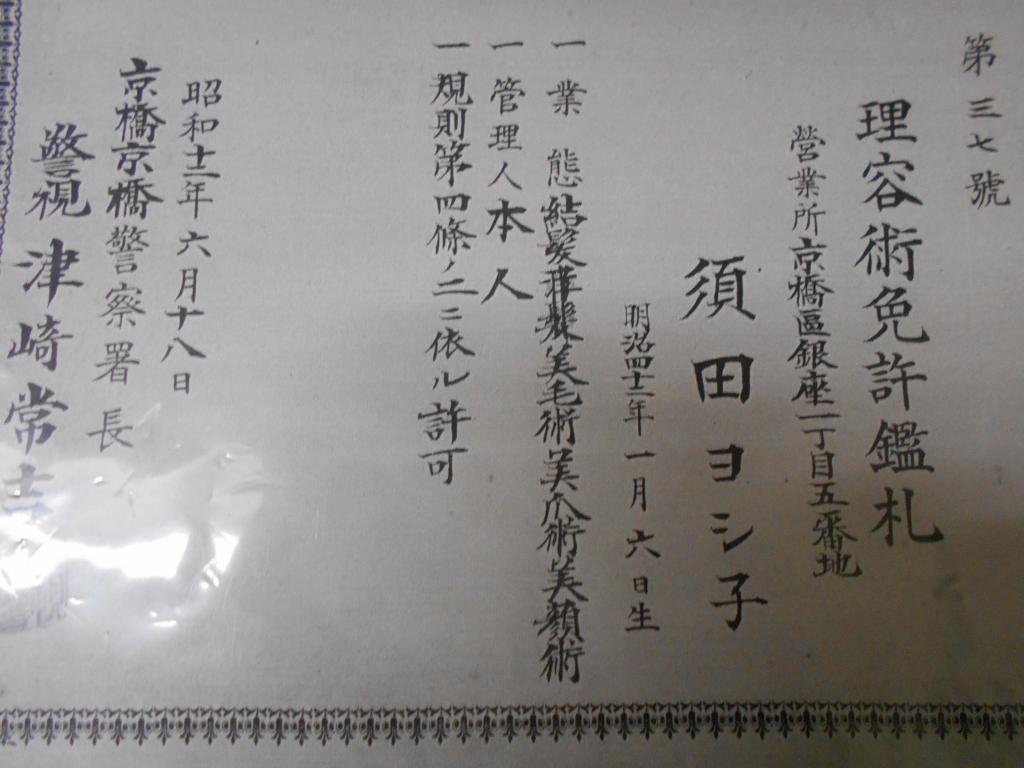 第三七號
理容術免許鑑札
營業所京橋區銀座一丁目五番地
須田ヨシ子
明治四十二年一月六日生
一業態結髮電髮美毛術美爪術美顏術
一管理人本人
一規則第四條ノ二ニ依ル許可
昭和十二年六月十八日
京橋京橋警察署長
警視津崎常